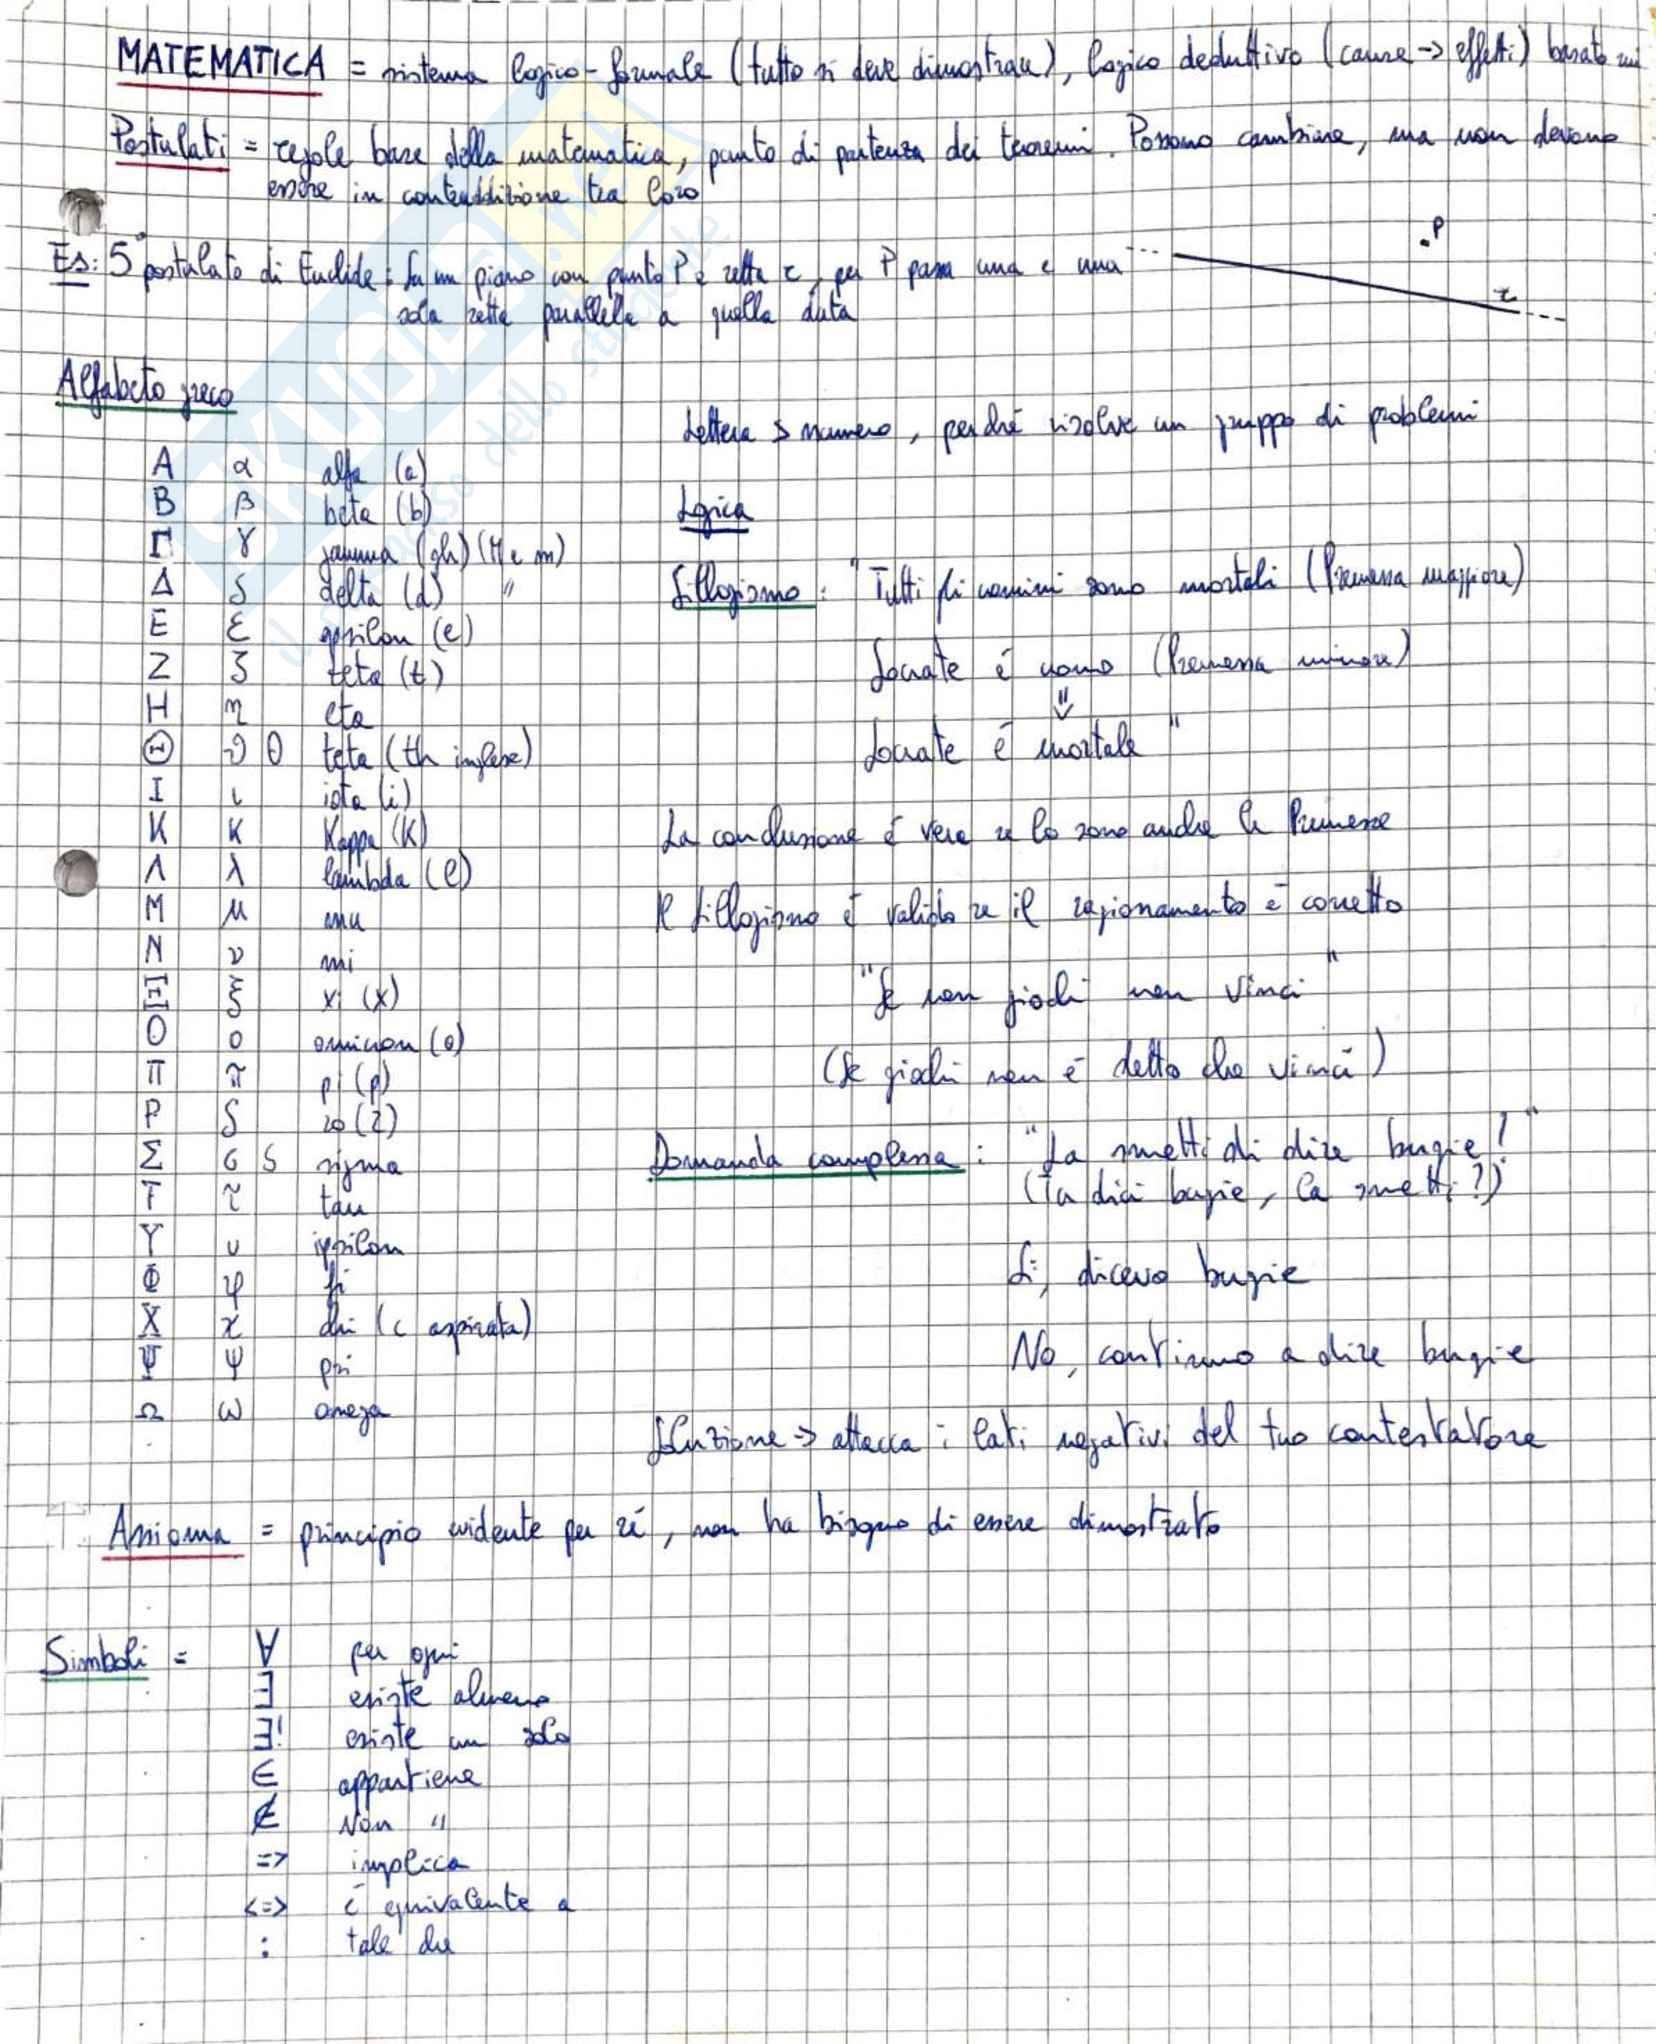 MATEMATICA = sistema logico-formale (tutto si deve dimostrare), logico deduttivo (cause -> effetti) basato sui
Postulati = regole base della matematica, punto di partenza dei teoremi. Possono cambiare, ma non devono
essere in contraddizione tra loro
Es: 5° postulato di Euclide: In un piano con punto P e retta r, per P passa una e una
sola retta parallela a quella data
P
r
Alfabeto greco
Lettera > numero, perché risolve un gruppo di problemi
A α alfa (a)
B β beta (b)
Γ γ gamma (gh) (M e m)
Δ δ delta (d) "
E ε epsilon (e)
Z ζ teta (t)
H η eta
Θ ϑ θ teta (th inglese)
I ι iota (i)
K κ Kappa (K)
Λ λ lambda (l)
M μ mu
N ν mi
Ξ ξ xi (x)
O ο omicron (o)
Π π pi (p)
P ρ ro (r)
Σ σ ς sigma
T τ tau
Υ υ ypsilon
Φ φ fi
X χ chi (c aspirata)
Ψ ψ psi
Ω ω omega
Logica
Sillogismo: "Tutti gli uomini sono mortali (Premessa maggiore)
Socrate è uomo (Premessa minore)
⇓
Socrate è mortale"
La conclusione è vera se lo sono anche le Premesse
Il Sillogismo è valido se il ragionamento è corretto
"Se non giochi non vinci"
(Se giochi non è detto che vinca)
Domanda complessa: "La smetti di dire bugie!"
(Tu dici bugie, la smetti?)
Sì, dicevo bugie
No, continuo a dire bugie
Soluzione → attacca i lati negativi del tuo contestatore
Assioma = principio evidente per sé, non ha bisogno di essere dimostrato
Simboli = ∀ per ogni
∃ esiste almeno
∃! esiste un solo
∈ appartiene
∉ Non "
=> implica
<=> è equivalente a
: tale che
SKUOLA.net
il paradiso dello studente